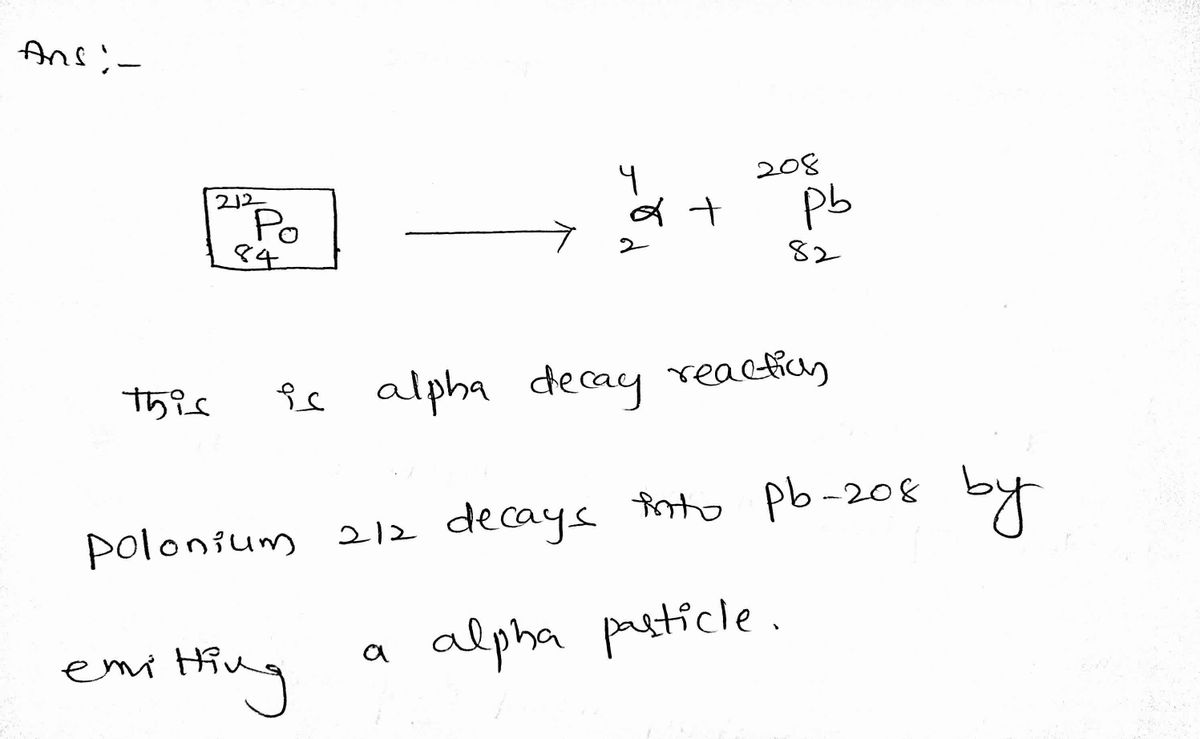 Ans :-
²¹²₈₄Po ⟶ ⁴₂α + ²⁰⁸₈₂Pb
This is alpha decay reaction
polonium 212 decays into pb-208 by
emitting a alpha particle.